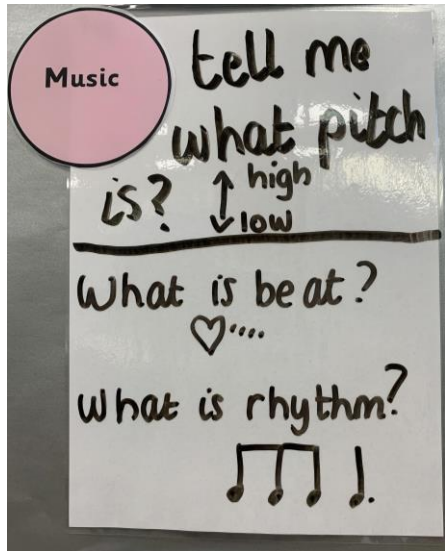 Music
tell me
what pitch
is? high
low
What is beat?
What is rhythm?